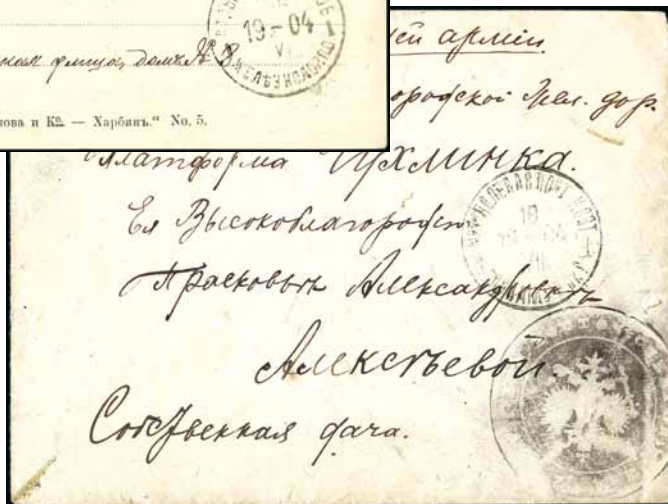 19-04
VI
улица, домъ № 8
ова и К°. — Харбинъ." No. 5.
ей арміи.
ородской Жел. дор.
Платформа Пухлинка.
Ея Высокоблагородію
Прасковьѣ Александровнѣ
Алексѣевой.
Собственная дача.
18
04